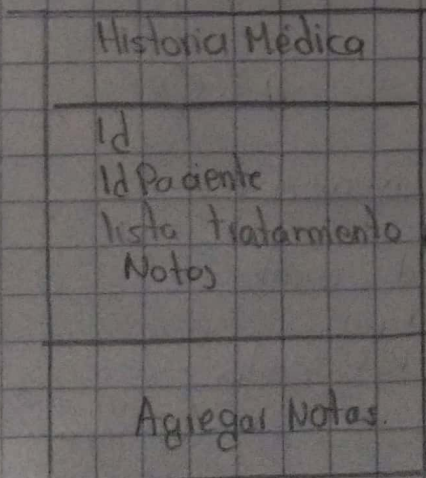 Historia Médica
Id
Id Paciente
lista tratamiento
Notas
Agregar Notas.